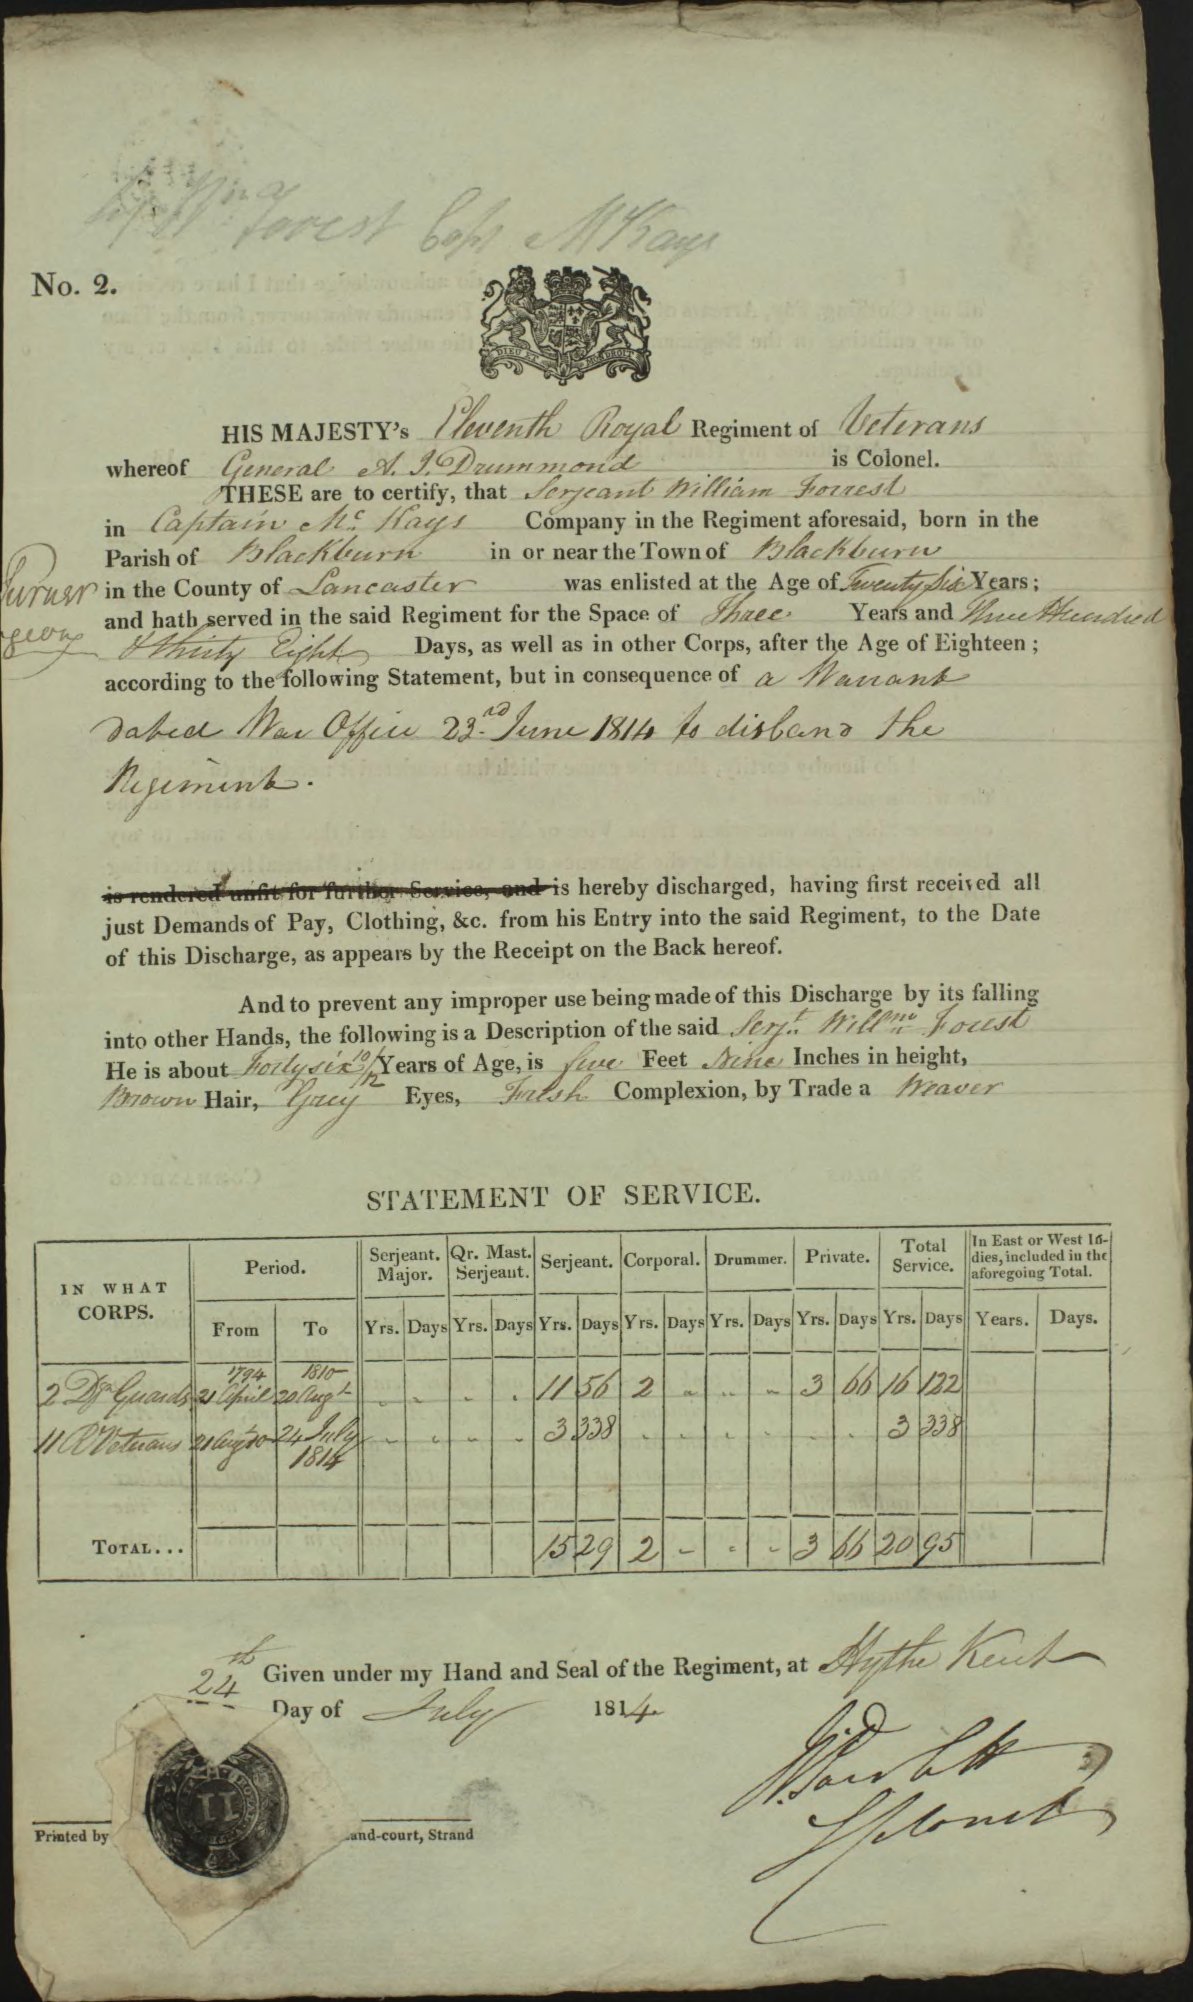 Forest Capt McKays
No. 2.
DIEU ET MON DROIT
HIS MAJESTY's Eleventh Royal Regiment of Veterans
whereof General A. J. Drummond is Colonel.
THESE are to certify, that Serjeant William Forrest
in Captain Mc Kays Company in the Regiment aforesaid, born in the
Parish of Blackburn in or near the Town of Blackburn
Turner in the County of Lancaster was enlisted at the Age of Twenty Six Years;
and hath served in the said Regiment for the Space of Three Years and Three Hundred
& thirty Eight Days, as well as in other Corps, after the Age of Eighteen;
according to the following Statement, but in consequence of a Warrant
dated War Office 23rd June 1814 to disband the
Regiment.
is rendered unfit for further Service, and is hereby discharged, having first received all
just Demands of Pay, Clothing, &c. from his Entry into the said Regiment, to the Date
of this Discharge, as appears by the Receipt on the Back hereof.
And to prevent any improper use being made of this Discharge by its falling
into other Hands, the following is a Description of the said Serjt. Willm Forest
He is about Forty six 10/12 Years of Age, is five Feet Nine Inches in height,
Brown Hair, Grey Eyes, Fresh Complexion, by Trade a Weaver
STATEMENT OF SERVICE.
IN WHAT CORPS. Period. Serjeant. Major. Qr. Mast. Serjeant. Serjeant. Corporal. Drummer. Private. Total Service. In East or West In-dies, included in the aforegoing Total.
From To Yrs. Days Yrs. Days Yrs. Days Yrs. Days Yrs. Days Yrs. Days Yrs. Days Years. Days.
2 Dgn Guards 1794 21 April 1810 20 Augt " " " " 11 56 2 " " " 3 66 16 122
11 R Veterans 21 Aug 10 24 July 1814 " " " " 3 338 " " " " " " 3 338
TOTAL... 15 29 2 - - - 3 66 20 95
24th Given under my Hand and Seal of the Regiment, at Hythe Kent
Day of July 1814.
II
Printed by and-court, Strand